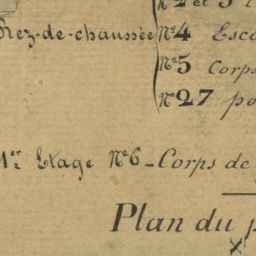 Nos 2 et 3
Rez-de-chaussée No 4 Esca
No 5 Corps
No 27 po
1er Etage No 6 - Corps de
Plan du p